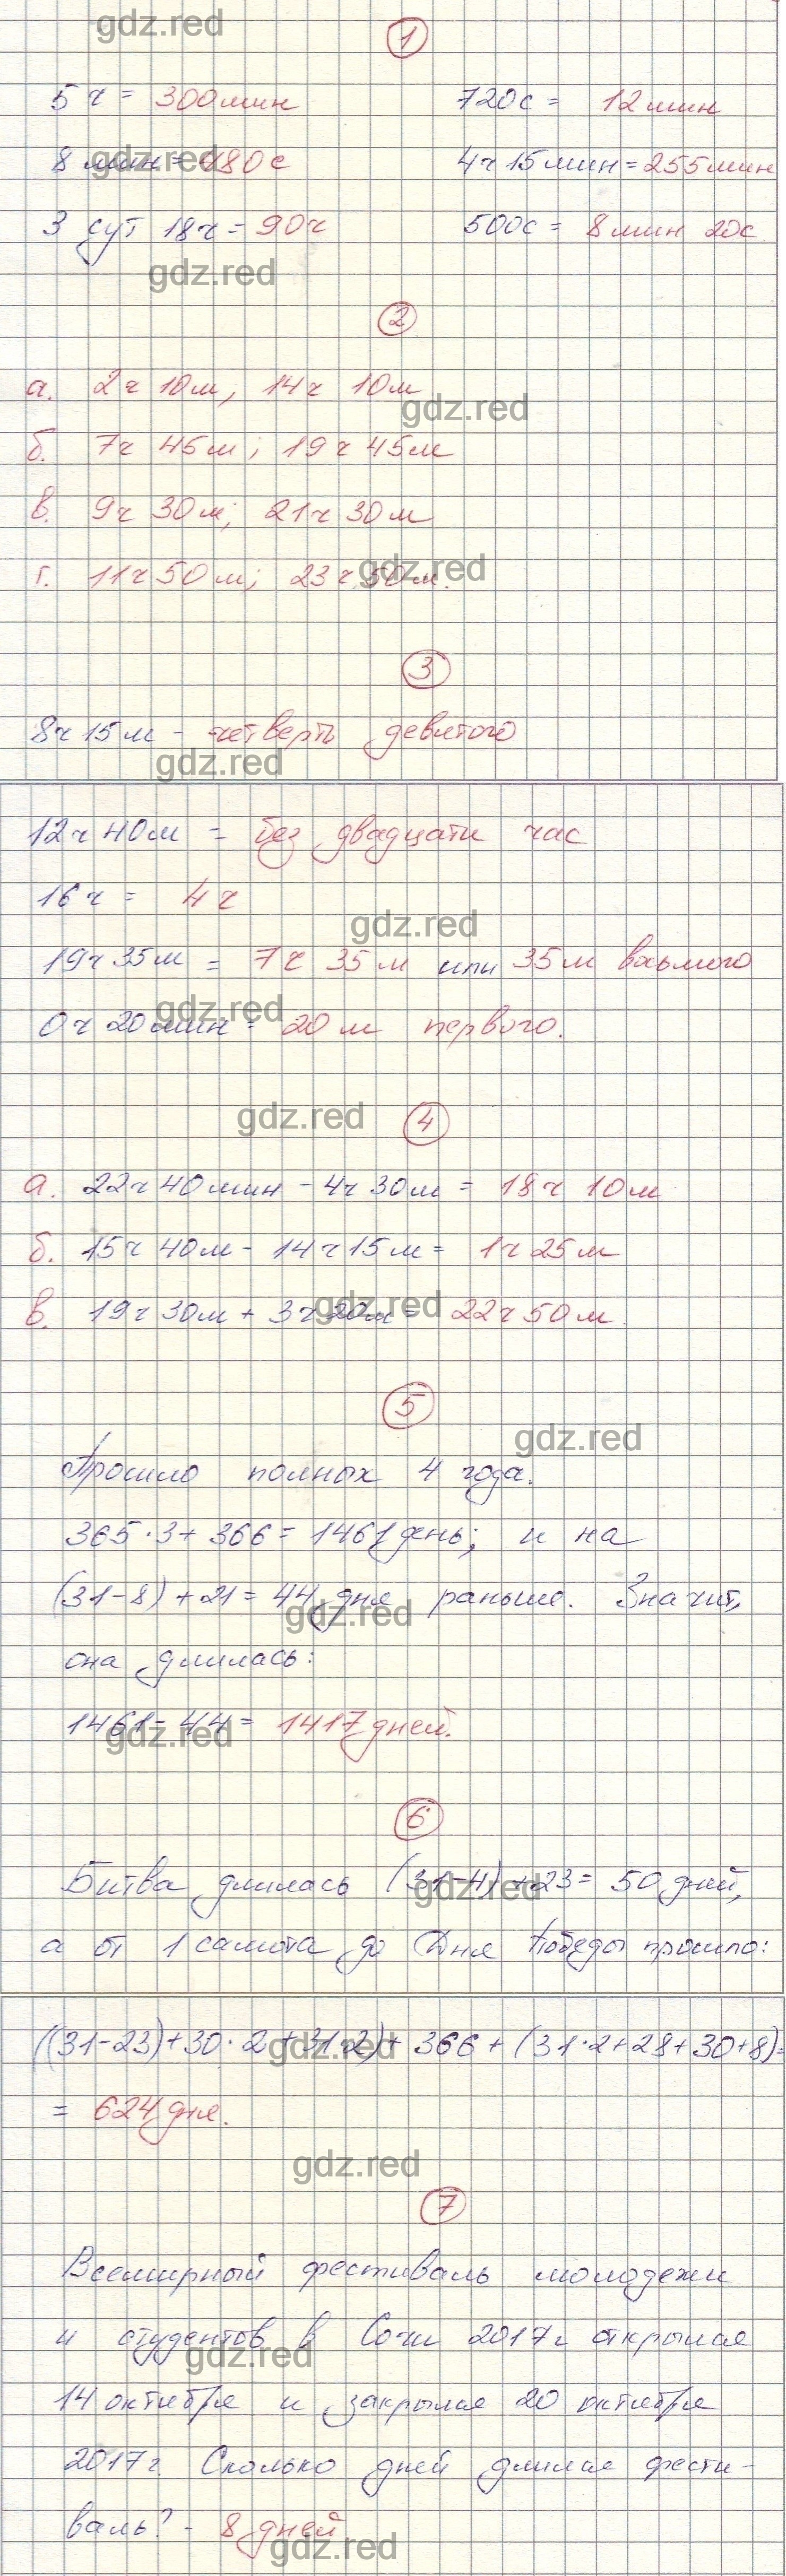 gdz.red
1
5 ч = 300 мин 720 с = 12 мин
8 мин = 480 с 4ч 15 мин = 255 мин
gdz.red
3 сут 18ч = 90ч 500с = 8 мин 20с
gdz.red
2
а. 2ч 10м, 14ч 10м
gdz.red
б. 7ч 45м; 19ч 45м
в. 9ч 30м; 21ч 30м
г. 11ч 50м; 23ч 50м.
gdz.red
3
8ч 15м - четверть девятого
gdz.red
12ч 40м = без двадцати час
16ч = 4ч
gdz.red
19ч 35м = 7ч 35м или 35м восьмого
gdz.red
0ч 20мин = 20м первого.
gdz.red
4
а. 22ч 40мин - 4ч 30м = 18ч 10м
б. 15ч 40м - 14ч 15м = 1ч 25м
в. 19ч 30м + 3ч 20м = 22ч 50м.
gdz.red
5
gdz.red
Прошло полных 4 года.
365·3 + 366 = 1461 день; и на
(31-8) + 21 = 44 дня раньше. Значит,
gdz.red
она длилась:
1461 - 44 = 1417 дней.
gdz.red
6
Битва длилась (31-4) + 23 = 50 дней,
gdz.red
а от 1 салюта до Дня Победы прошло:
((31-23)+30·2+31·2)+366+(31·2+28+30+8)=
gdz.red
= 624 дня.
gdz.red
7
Всемирный фестиваль молодежи
и студентов в Сочи 2017г. открылся
gdz.red
14 октября и закрылся 20 октября
2017г. Сколько дней длился фести-
валь? - 8 дней
gdz.red